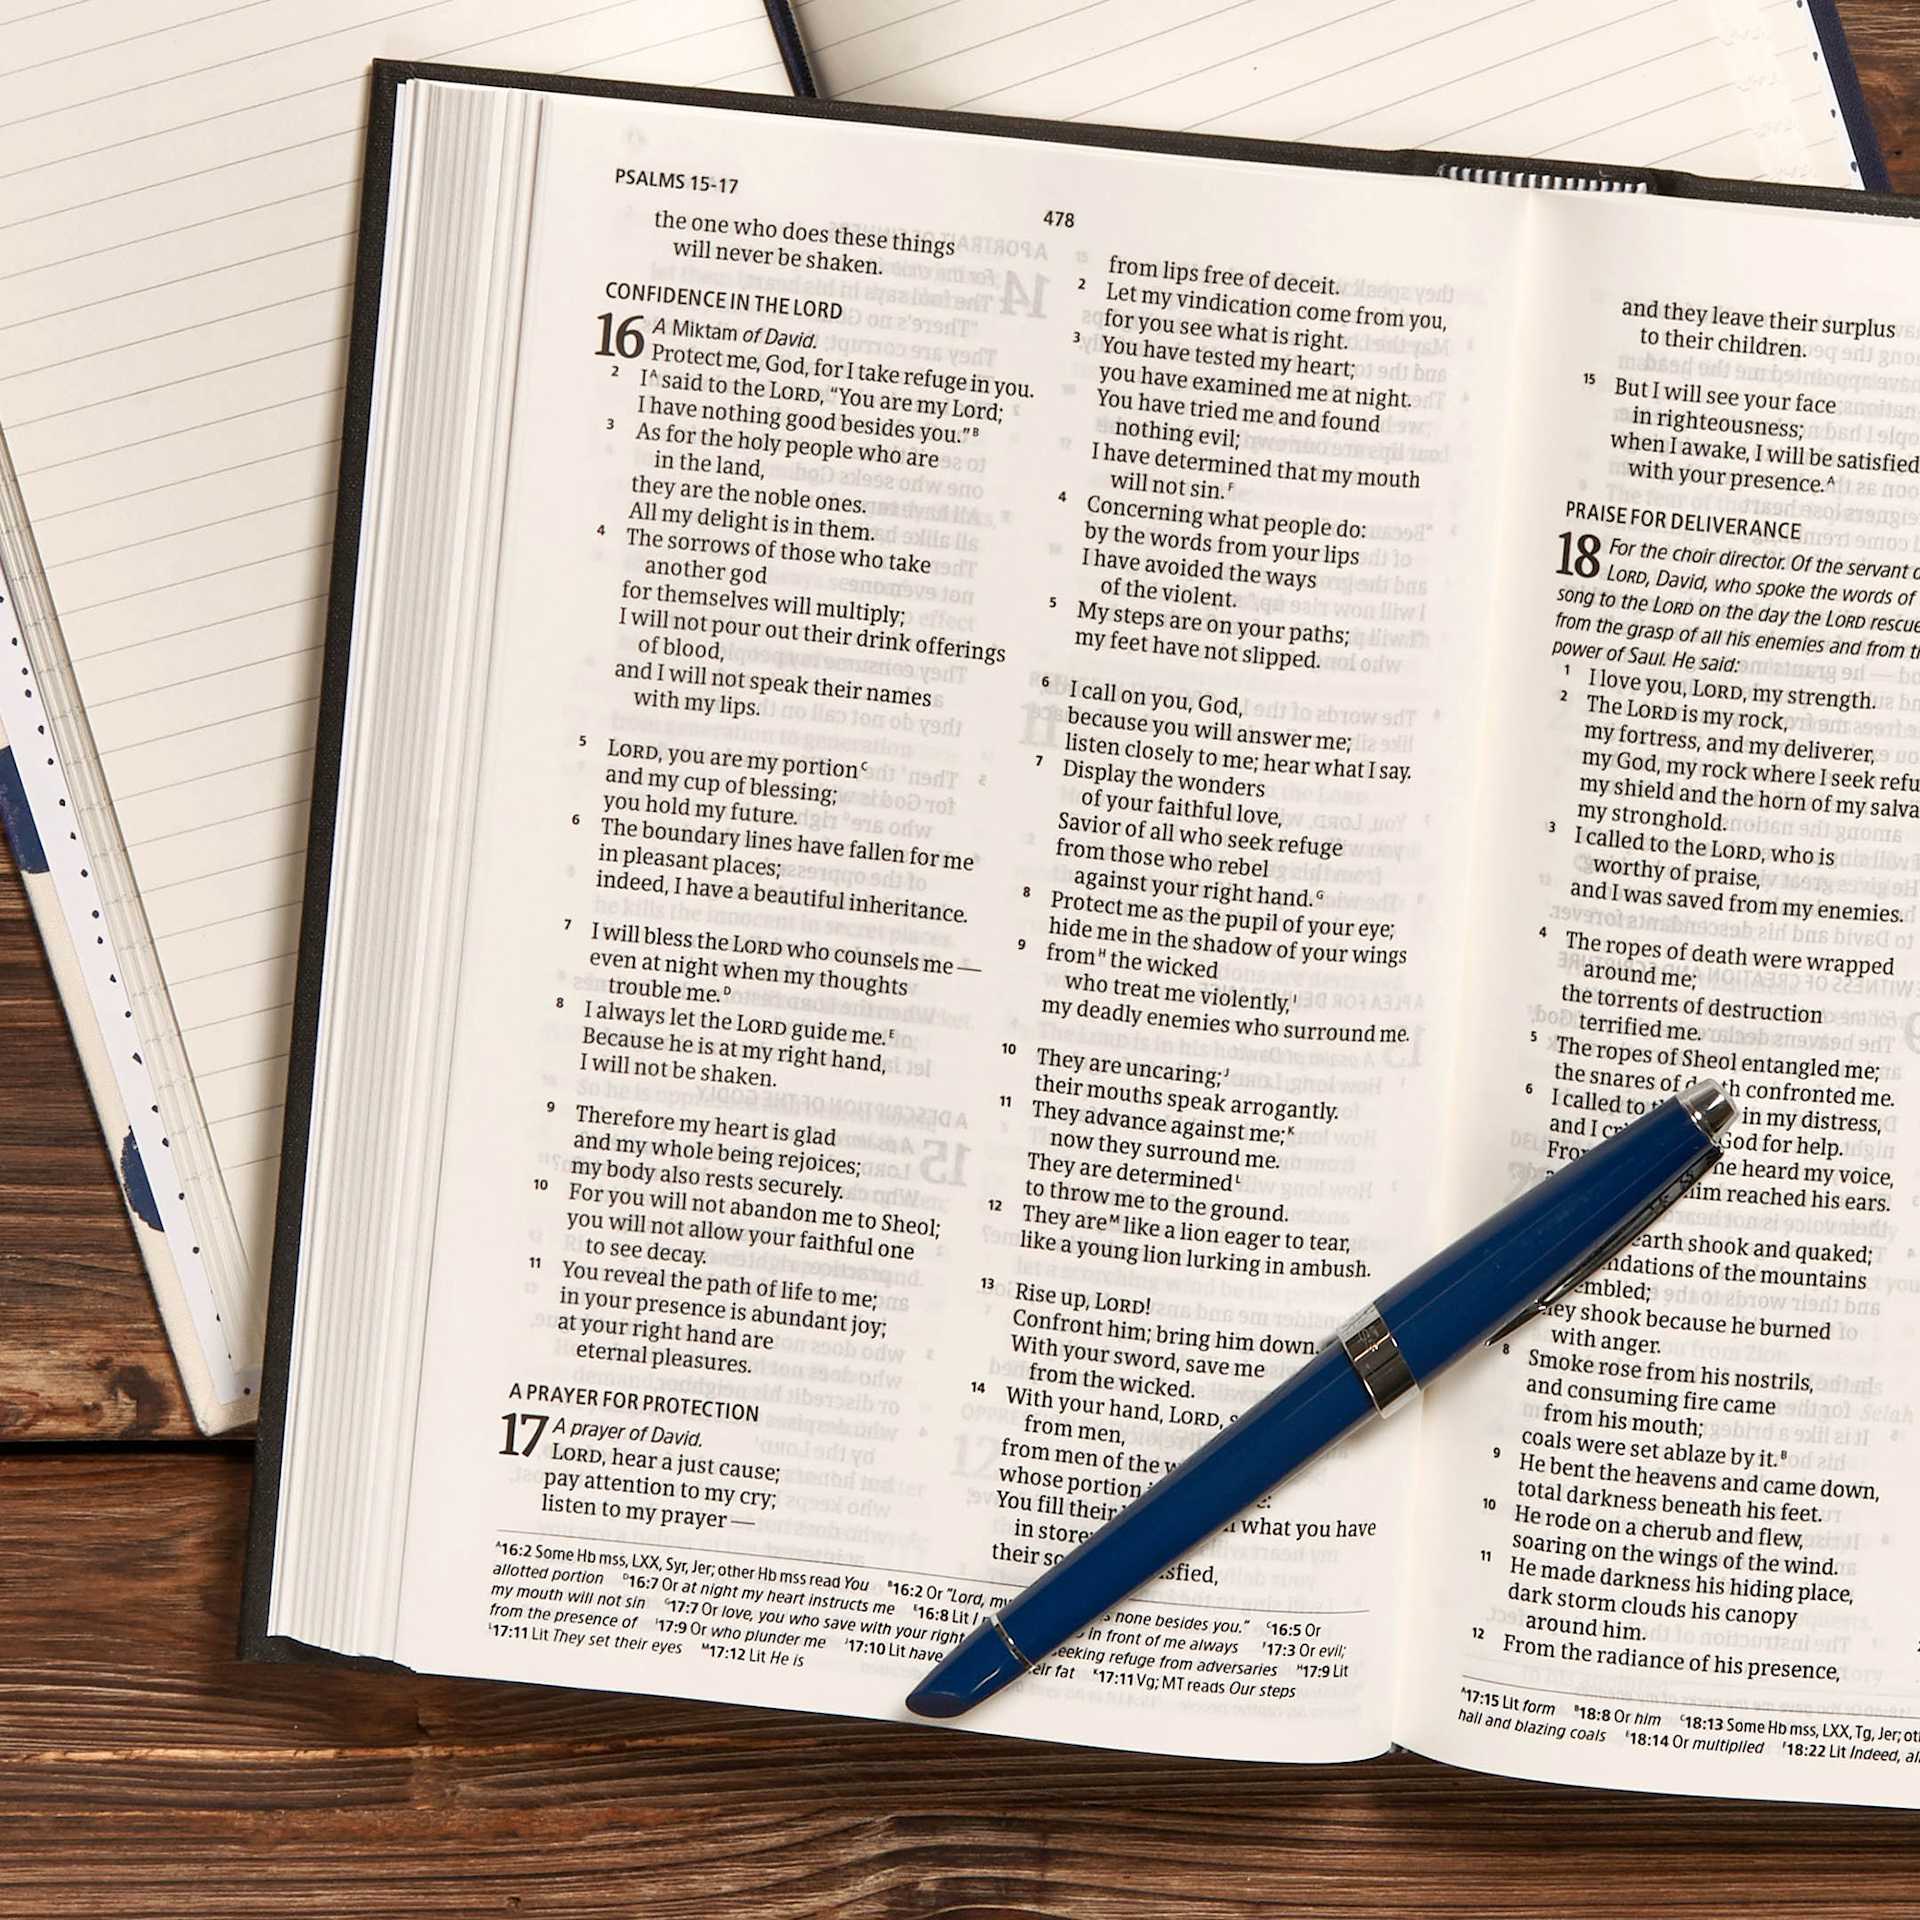 PSALMS 15-17
478
the one who does these things
will never be shaken.
CONFIDENCE IN THE LORD
16 A Miktam of David.
Protect me, God, for I take refuge in you.
2 I A said to the LORD, “You are my Lord;
I have nothing good besides you.” B
3 As for the holy people who are
in the land,
they are the noble ones.
All my delight is in them.
4 The sorrows of those who take
another god
for themselves will multiply;
I will not pour out their drink offerings
of blood,
and I will not speak their names
with my lips.
5 LORD, you are my portion C
and my cup of blessing;
you hold my future.
6 The boundary lines have fallen for me
in pleasant places;
indeed, I have a beautiful inheritance.
7 I will bless the LORD who counsels me —
even at night when my thoughts
trouble me. D
8 I always let the LORD guide me. E
Because he is at my right hand,
I will not be shaken.
9 Therefore my heart is glad
and my whole being rejoices;
my body also rests securely.
10 For you will not abandon me to Sheol;
you will not allow your faithful one
to see decay.
11 You reveal the path of life to me;
in your presence is abundant joy;
at your right hand are
eternal pleasures.
A PRAYER FOR PROTECTION
17 A prayer of David.
LORD, hear a just cause;
pay attention to my cry;
listen to my prayer —
from lips free of deceit.
2 Let my vindication come from you,
for you see what is right.
3 You have tested my heart;
you have examined me at night.
You have tried me and found
nothing evil;
I have determined that my mouth
will not sin. F
4 Concerning what people do:
by the words from your lips
I have avoided the ways
of the violent.
5 My steps are on your paths;
my feet have not slipped.
6 I call on you, God,
because you will answer me;
listen closely to me; hear what I say.
7 Display the wonders
of your faithful love,
Savior of all who seek refuge
from those who rebel
against your right hand. G
8 Protect me as the pupil of your eye;
hide me in the shadow of your wings
9 from H the wicked
who treat me violently, I
my deadly enemies who surround me.
10 They are uncaring; J
their mouths speak arrogantly.
11 They advance against me; K
now they surround me.
They are determined L
to throw me to the ground.
12 They are M like a lion eager to tear,
like a young lion lurking in ambush.
13 Rise up, LORD!
Confront him; bring him down.
With your sword, save me
from the wicked.
14 With your hand, LORD,
from men,
from men of the
whose portion
You fill their what you have
in store
their
A16:2 Some Hb mss, LXX, Syr, Jer; other Hb mss read You B16:2 Or “Lord, my none besides you.” C16:5 Or
allotted portion D16:7 Or at night my heart instructs me E16:8 Lit I in front of me always F17:3 Or evil;
my mouth will not sin G17:7 Or love, you who save with your right seeking refuge from adversaries H17:9 Lit
from the presence of I17:9 Or who plunder me J17:10 Lit have their fat K17:11 Vg; MT reads Our steps
L17:11 Lit They set their eyes M17:12 Lit He is
and they leave their surplus
to their children.
15 But I will see your face
in righteousness;
when I awake, I will be satisfied
with your presence. A
PRAISE FOR DELIVERANCE
18 For the choir director. Of the servant
LORD, David, who spoke the words of
song to the LORD on the day the LORD
from the grasp of all his enemies and from
power of Saul. He said:
1 I love you, LORD, my strength.
2 The LORD is my rock,
my fortress, and my deliverer,
my God, my rock where I seek
my shield and the horn of my
my stronghold.
3 I called to the LORD, who is
worthy of praise,
and I was saved from my enemies.
4 The ropes of death were wrapped
around me;
the torrents of destruction
terrified me.
5 The ropes of Sheol entangled me;
the snares of death confronted me.
6 I called to in my distress,
and I God for help.
he heard my voice,
reached his ears.
earth shook and quaked;
of the mountains
they shook because he burned
with anger.
8 Smoke rose from his nostrils,
and consuming fire came
from his mouth;
coals were set ablaze by it. B
9 He bent the heavens and came down,
total darkness beneath his feet.
10 He rode on a cherub and flew,
soaring on the wings of the wind.
11 He made darkness his hiding place,
dark storm clouds his canopy
around him.
12 From the radiance of his presence,
A17:15 Lit form B18:8 Or him C18:13 Some Hb mss, LXX, Tg, Jer;
hail and blazing coals E18:14 Or multiplied F18:22 Lit Indeed,